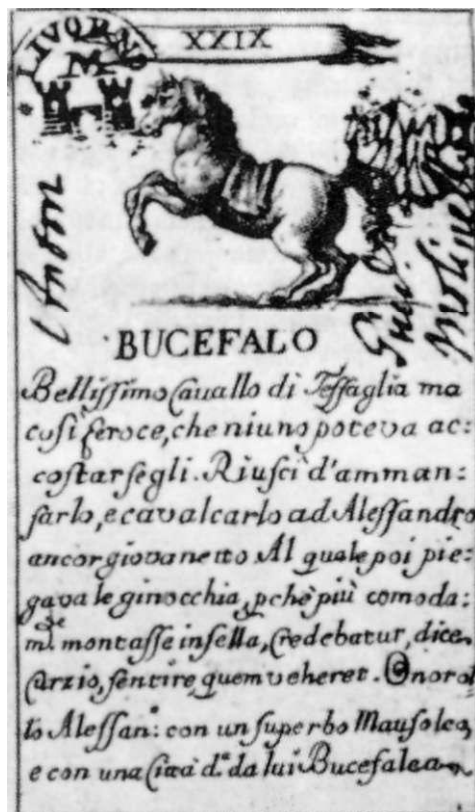 LIVORNO
XXIX
M
Anton
BUCEFALO
Bellissimo Cauallo di Tessaglia ma
cosi feroce, che niuno poteva ac:
costarsegli. Riusci d'amman:
sarlo, e cavalcarlo ad Alessandro
ancor giovanetto Al quale poi pie:
gava le ginocchia, pchè più comoda:
m.te montasse in sella, Credebatur, dice
Curzio, sentire, quem veheret. Onorol
lo Alessan.o: con un superbo Mausoleo,
e con una Città d.a da lui Bucefalea